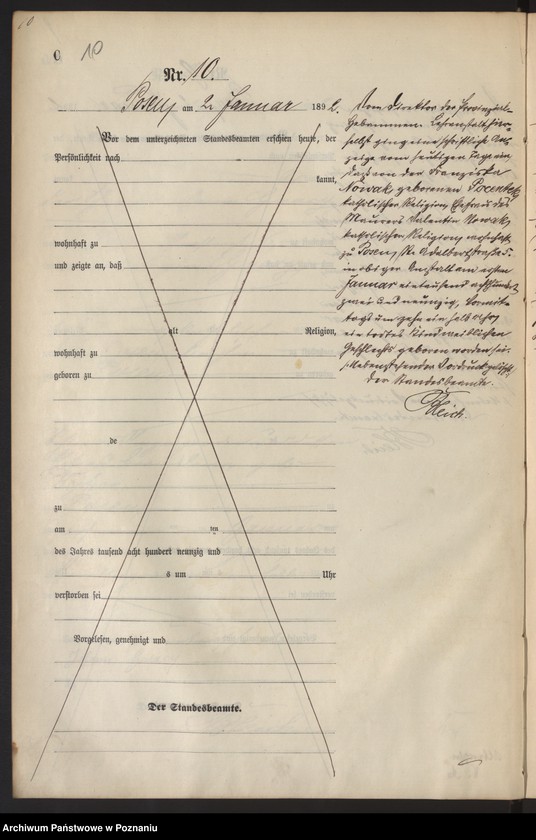 C 10
Nr. 10.
Posen am 2. Januar 1892.
Vor dem unterzeichneten Standesbeamten erschien heute, der
Persönlichkeit nach
kannt,
wohnhaft zu
und zeigte an, daß
alt Religion,
wohnhaft zu
geboren zu
de
zu
am ten
des Jahres tausend acht hundert neunzig und
s um Uhr
verstorben sei
Vorgelesen, genehmigt und
Der Standesbeamte.
Vom Direktor der Provinzial-
Hebammen-Lehranstalt hier-
selbst ging eine schriftliche An-
zeige vom heutigen Tage ein
daß von der Franziska
Nowak geborenen
katholischer Religion Ehefrau des
Maurers Valentin Nowak,
katholischer Religion, wohnhaft
zu Posen, St. Adalbertstraße
in obiger Anstalt am ersten
Januar eintausend achthundert
zwei und neunzig, Vormit-
tags um zehn ein halb Uhr
ein todtes Kind weiblichen
Geschlechts geboren worden sei.
Nebenstehender Vordruck gelöscht.
Der Standesbeamte.
Archiwum Państwowe w Poznaniu